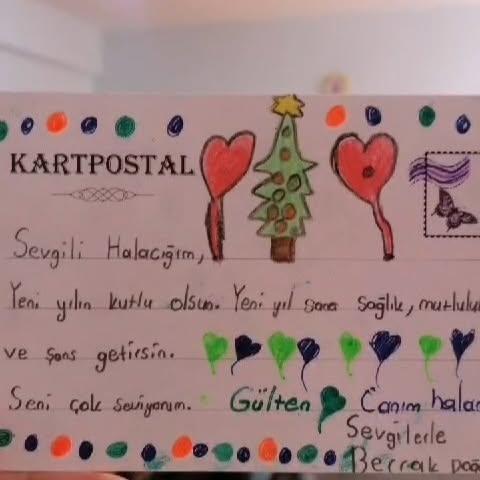 KARTPOSTAL
Sevgili Halacığım,
Yeni yılın kutlu olsun. Yeni yıl sana sağlık,
ve şans getirsin.
Seni çok seviyorum. Gülten Canım
Sevgilerle
Berrak